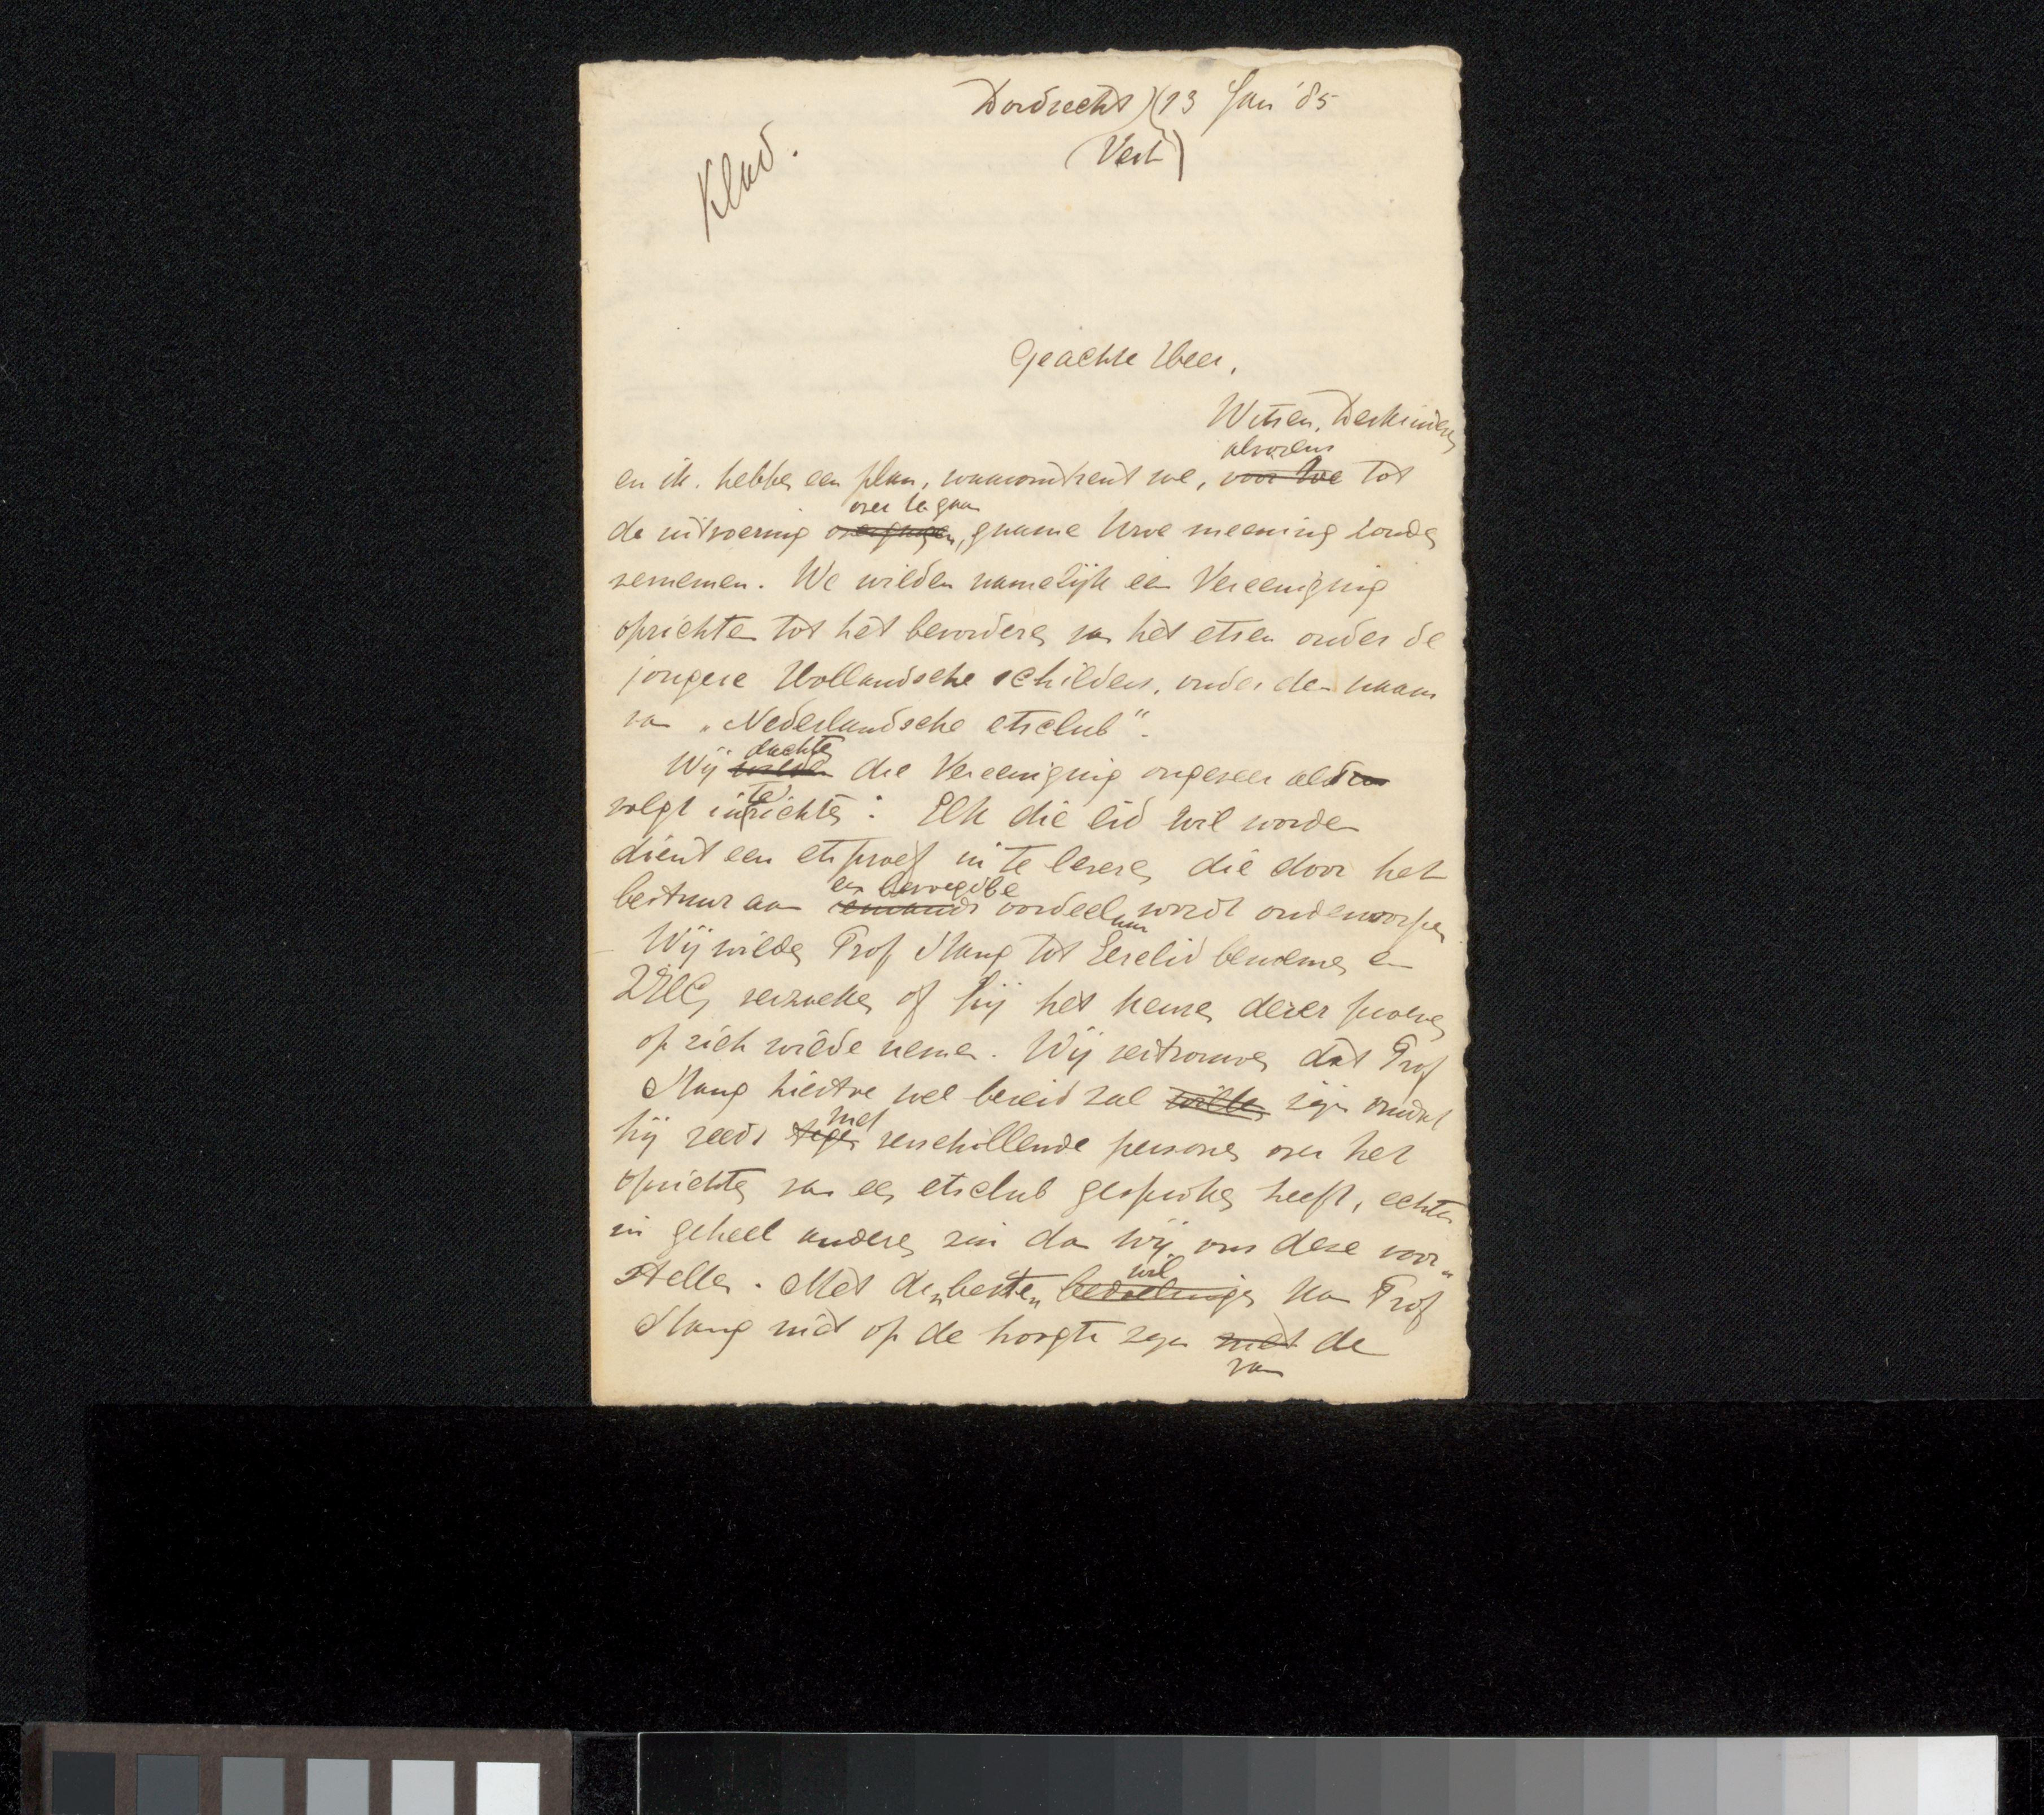 Dordrecht (13 Jan '85
(Vest)
Klad.
Geachte Heer,
Witsen, Derkinderen
alvorens
en ik. hebben een plan, waaromtrent we, voor we tot
over te gaan
de uitvoering overgingen, gaarne Uwe meening zouden
vernemen. We wilden namelijk een Vereeniging
oprichten tot het bevorderen van het etsen onder de
jongere Hollandsche schilders, onder den naam
van „Nederlandsche etsclub".
dachten
Wij wilden die Vereeniging ongeveer als
te
volgt inrichten: Elk die lid wil worden
dient een etsproef in te leveren die door het
een bevoegd
bestuur aan iemands oordeel wordt onderworpen
Wij wilden Prof Stang tot Eerelid benoemen en
ZHG verzoeken of hij het keuren dezer proeven
op zich wilde nemen. Wij vertrouwen dat Prof
Stang hiertoe wel bereid zal willen zijn omdat
met
hij reeds tegen verschillende personen over het
oprichten van een etsclub gesproken heeft, echter
in geheel anderen zin dan wij ons deze voor-
stellen. Met den besten bedoelingen kan Prof
wil
Stang niet op de hoogte zijn met de
van